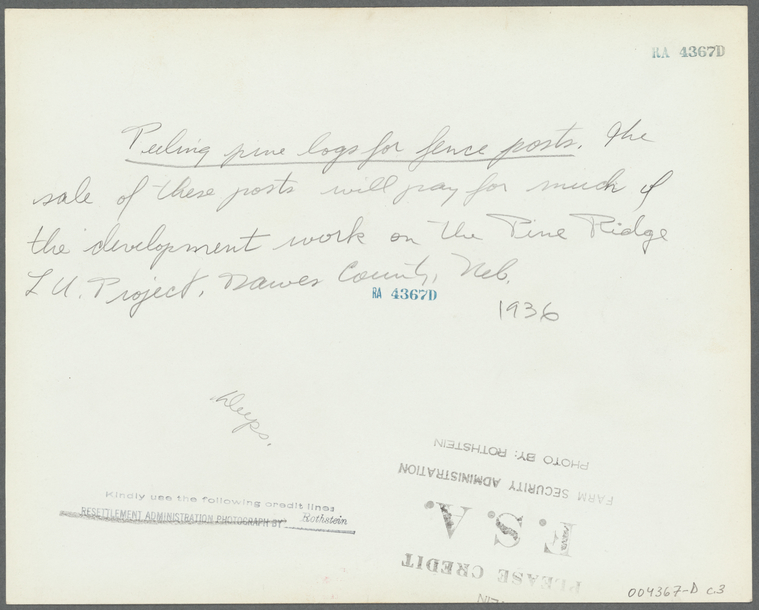 RA 4367D
Peeling pine logs for fence posts. The
sale of these posts will pay for much of
the development work on the Pine Ridge
L U. Project, Dawes County, Neb.
RA 4367D
1936
Kindly use the following credit line:
RESETTLEMENT ADMINISTRATION PHOTOGRAPH BY Rothstein
PLEASE CREDIT
F.S.A.
FARM SECURITY ADMINISTRATION
PHOTO BY: ROTHSTEIN
004367-D c.3